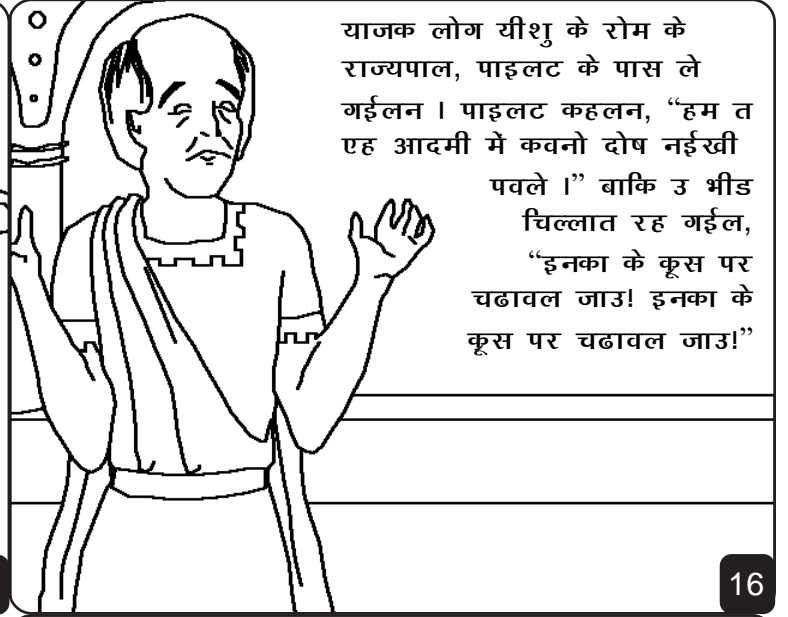 याजक लोग यीशु के रोम के
राज्यपाल, पाइलट के पास ले
गईलन । पाइलट कहलन, “हम त
एह आदमी में कवनो दोष नईखी
पवले ।” बाकि उ भीड
चिल्लात रह गईल,
“इनका के क्रूस पर
चढावल जाउ! इनका के
क्रूस पर चढावल जाउ!”
16